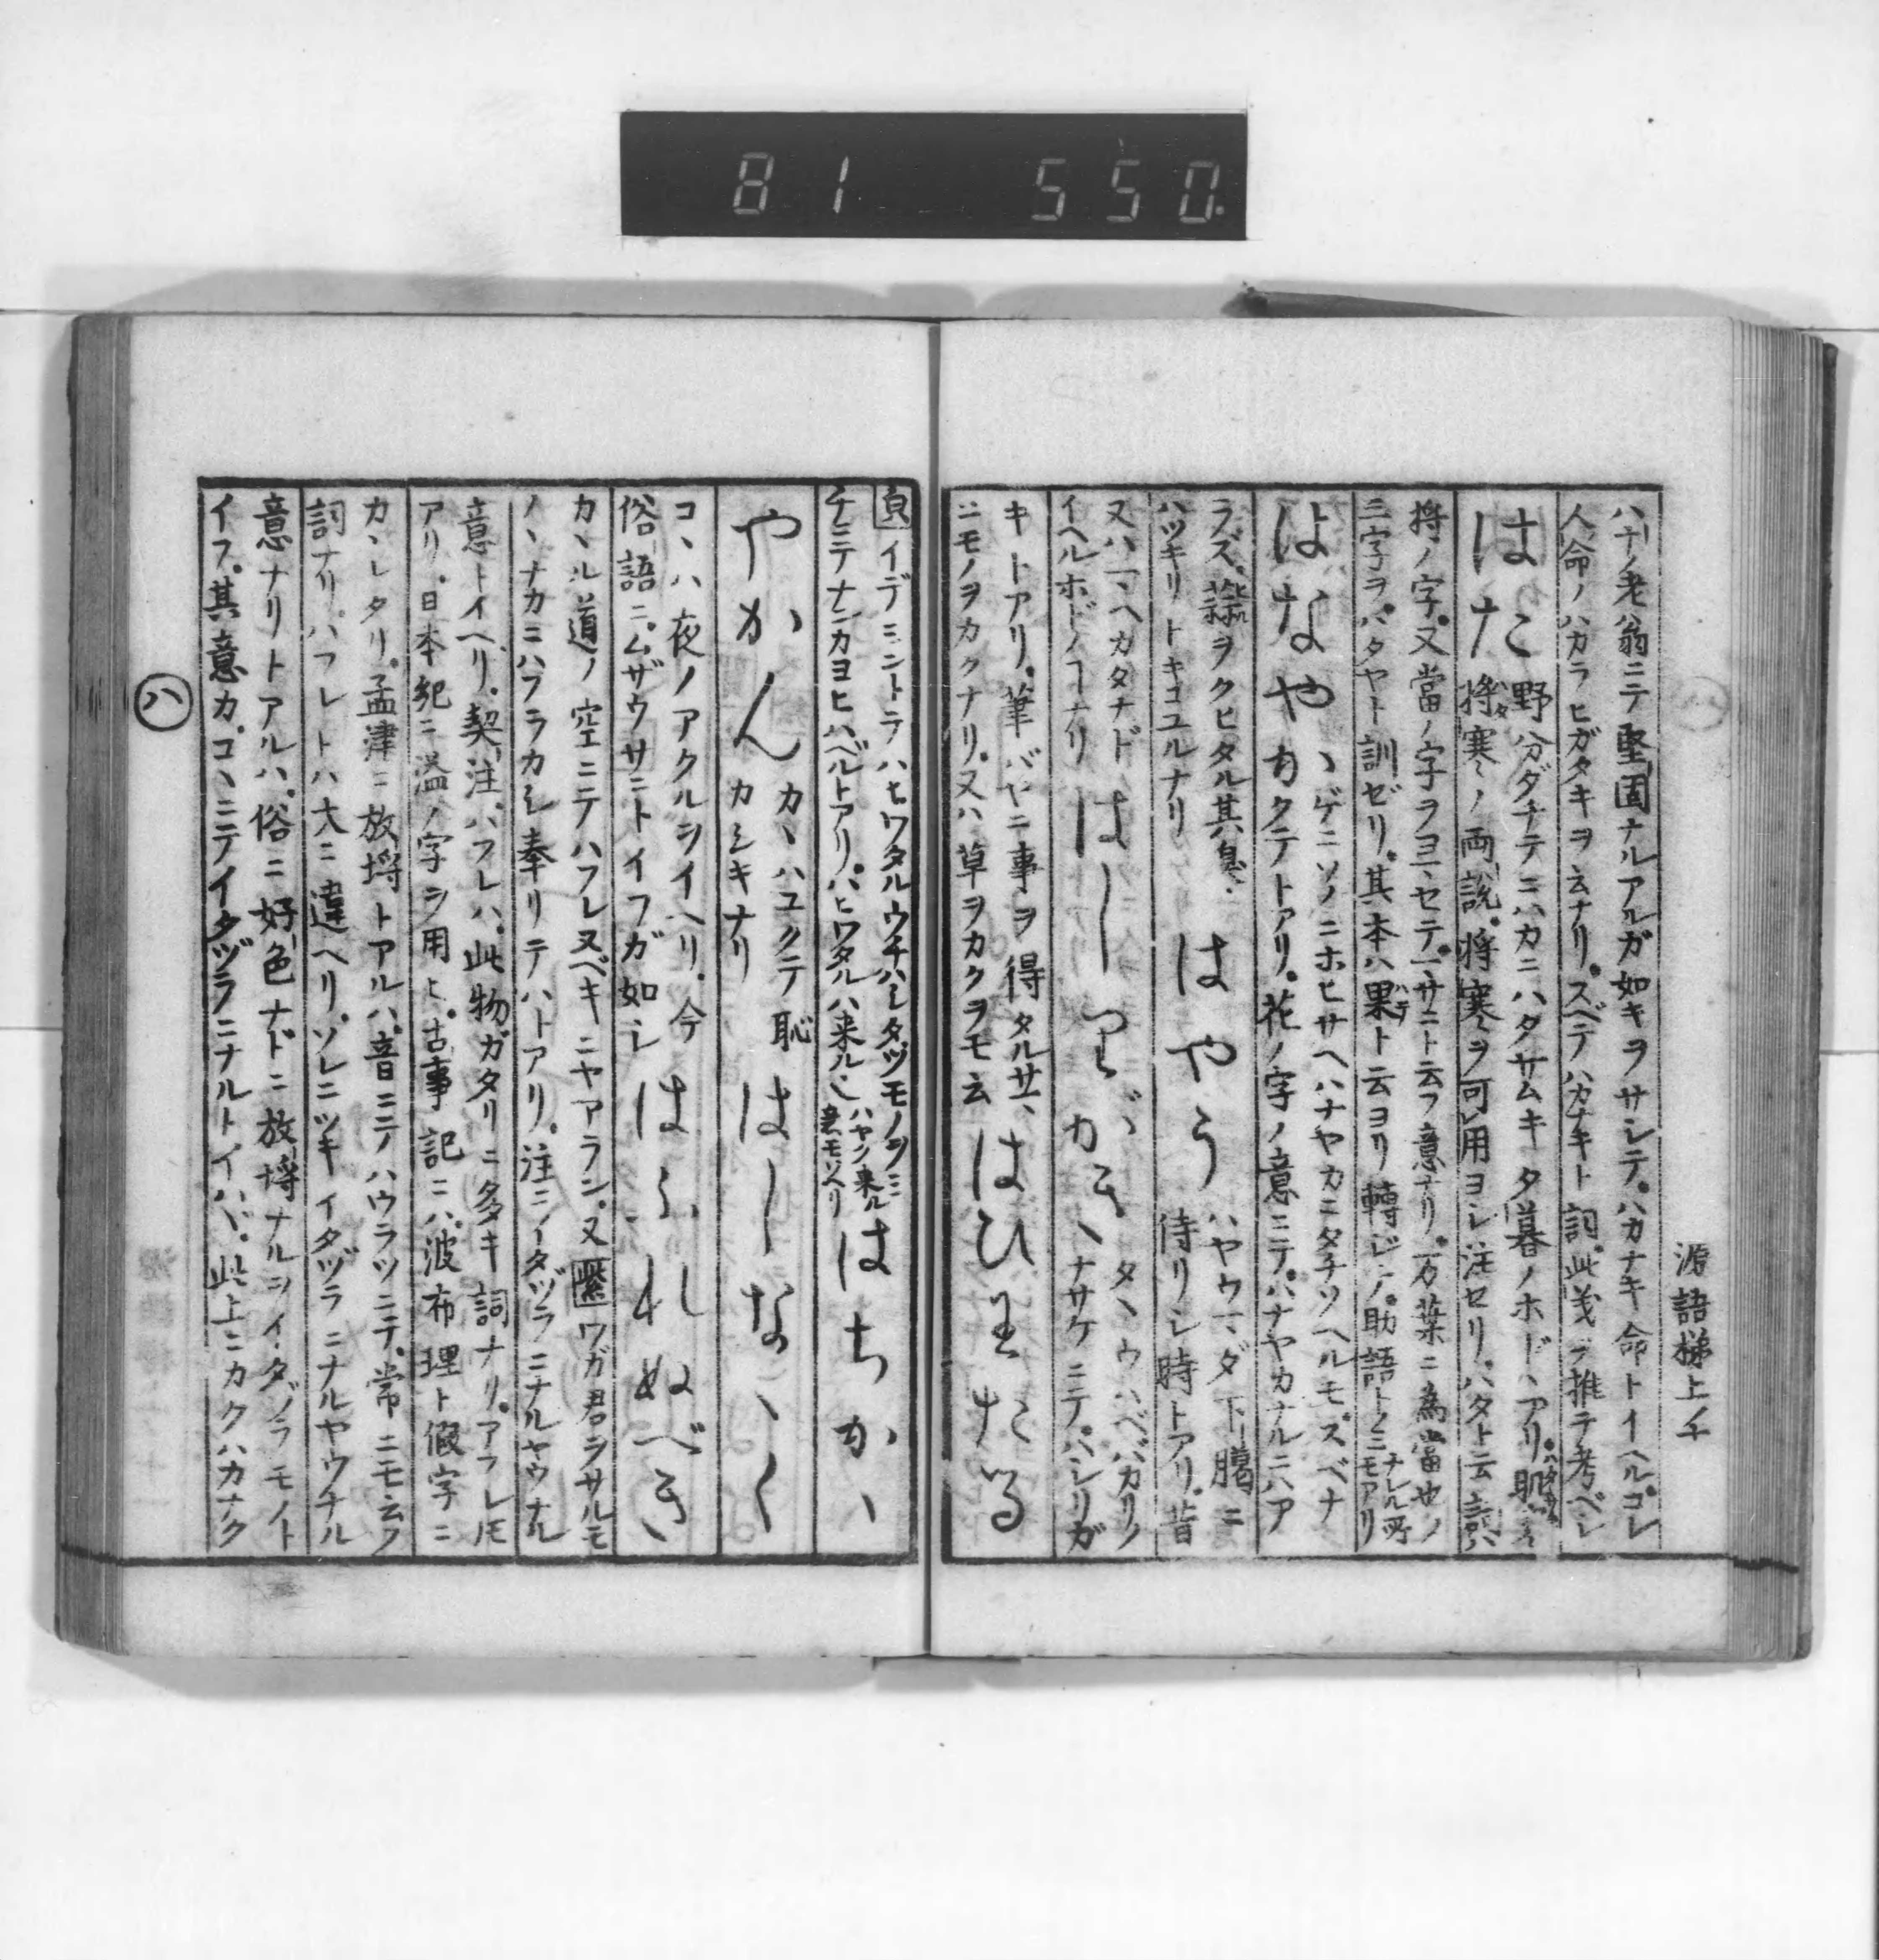 81 550.
源語梯上ノ十
ハチノ老翁ニテ堅固ナルアルガ如キヲサシテ。ハカナキ命トイヘル。コレ
人命ノハカラヒガタキヲ云ナリ。スベテハカナキト詞。此義ヲ推テ考ベシ
はた
野分ダチテニハカニハダサムキタ暮ノホドハアリ。
将寒ノ両説。将寒ヲ可レ用ヨシ注セリ。ハタト云
将ノ字。又當ノ字ヲヨミ、セテ。サニト云フ意ナリ。万葉ニ為當也ノ
三字ヲ。ハタヤト訓ゼリ。其本ハ果ト云ヨリ轉ジノ。助語トノミナレル所モアリ
はなやか
ゝゲニソノニホヒサヘハナヤカニタチソヘルモ。スベナ
クテトアリ。花ノ字ノ意ニテ。ハナヤカナルニハア
ラズ。蒜ヲクヒタル其臭。
ハツキリトキコユルナリ
はやう
ハヤウマダ下臈ニ
侍リシ時トアリ。昔
又ハマヘカタナド
イヘルホドノヿナリ
はしりがき
タヽウハベバカリノ
ナサケニテ。ハシリガ
キトアリ。筆バヤニ事ヲ得タルサ、
ニモノヲカクナリ。又ハ草ヲカクヲモ云
はひわたる
貞イデミントテハヒワタルウチハシダツモノヲミ
チミテナンカヨヒハベルトアリ。ハヒワタルハ来ル
ハヤク来ル
はちかゝ
やかん
カヽハユクテ恥
カシキナリ
はしなゝく
コヽハ夜ノアクルヲイヘリ。今
俗語ニ。ムザウサニトイフガ如シ
はふれぬべき
カヽル道ノ空ニテハフレヌベキニヤアラン。又紫ワガ君ヲサルモ
ノヽナカニハフラカシ奉リテハトアリ。注ニイタヅラニナルヤウナル
意トイヘリ。契注ハフレハ。此物ガタリニ多キ詞ナリ。アフレモ
アリ。日本紀ニ溢ノ字ヲ用ヒ。古事記ニハ。波布理ト假字ニ
カヽレタリ。孟津ニ放埒トアルハ。音ニテハウラツニテ。常ニモ云フ
詞ナリ。ハフレトハ大ニ違ヘリ。ソレニツキイタヅラニナルヤウナル
意ナリトアルハ。俗ニ好色ナドニ放埒ナルヲイタヅラモノト
イフ。其意カ。コヽニテイタヅラニナルトイハヾ。此上ニカクハカナク
八